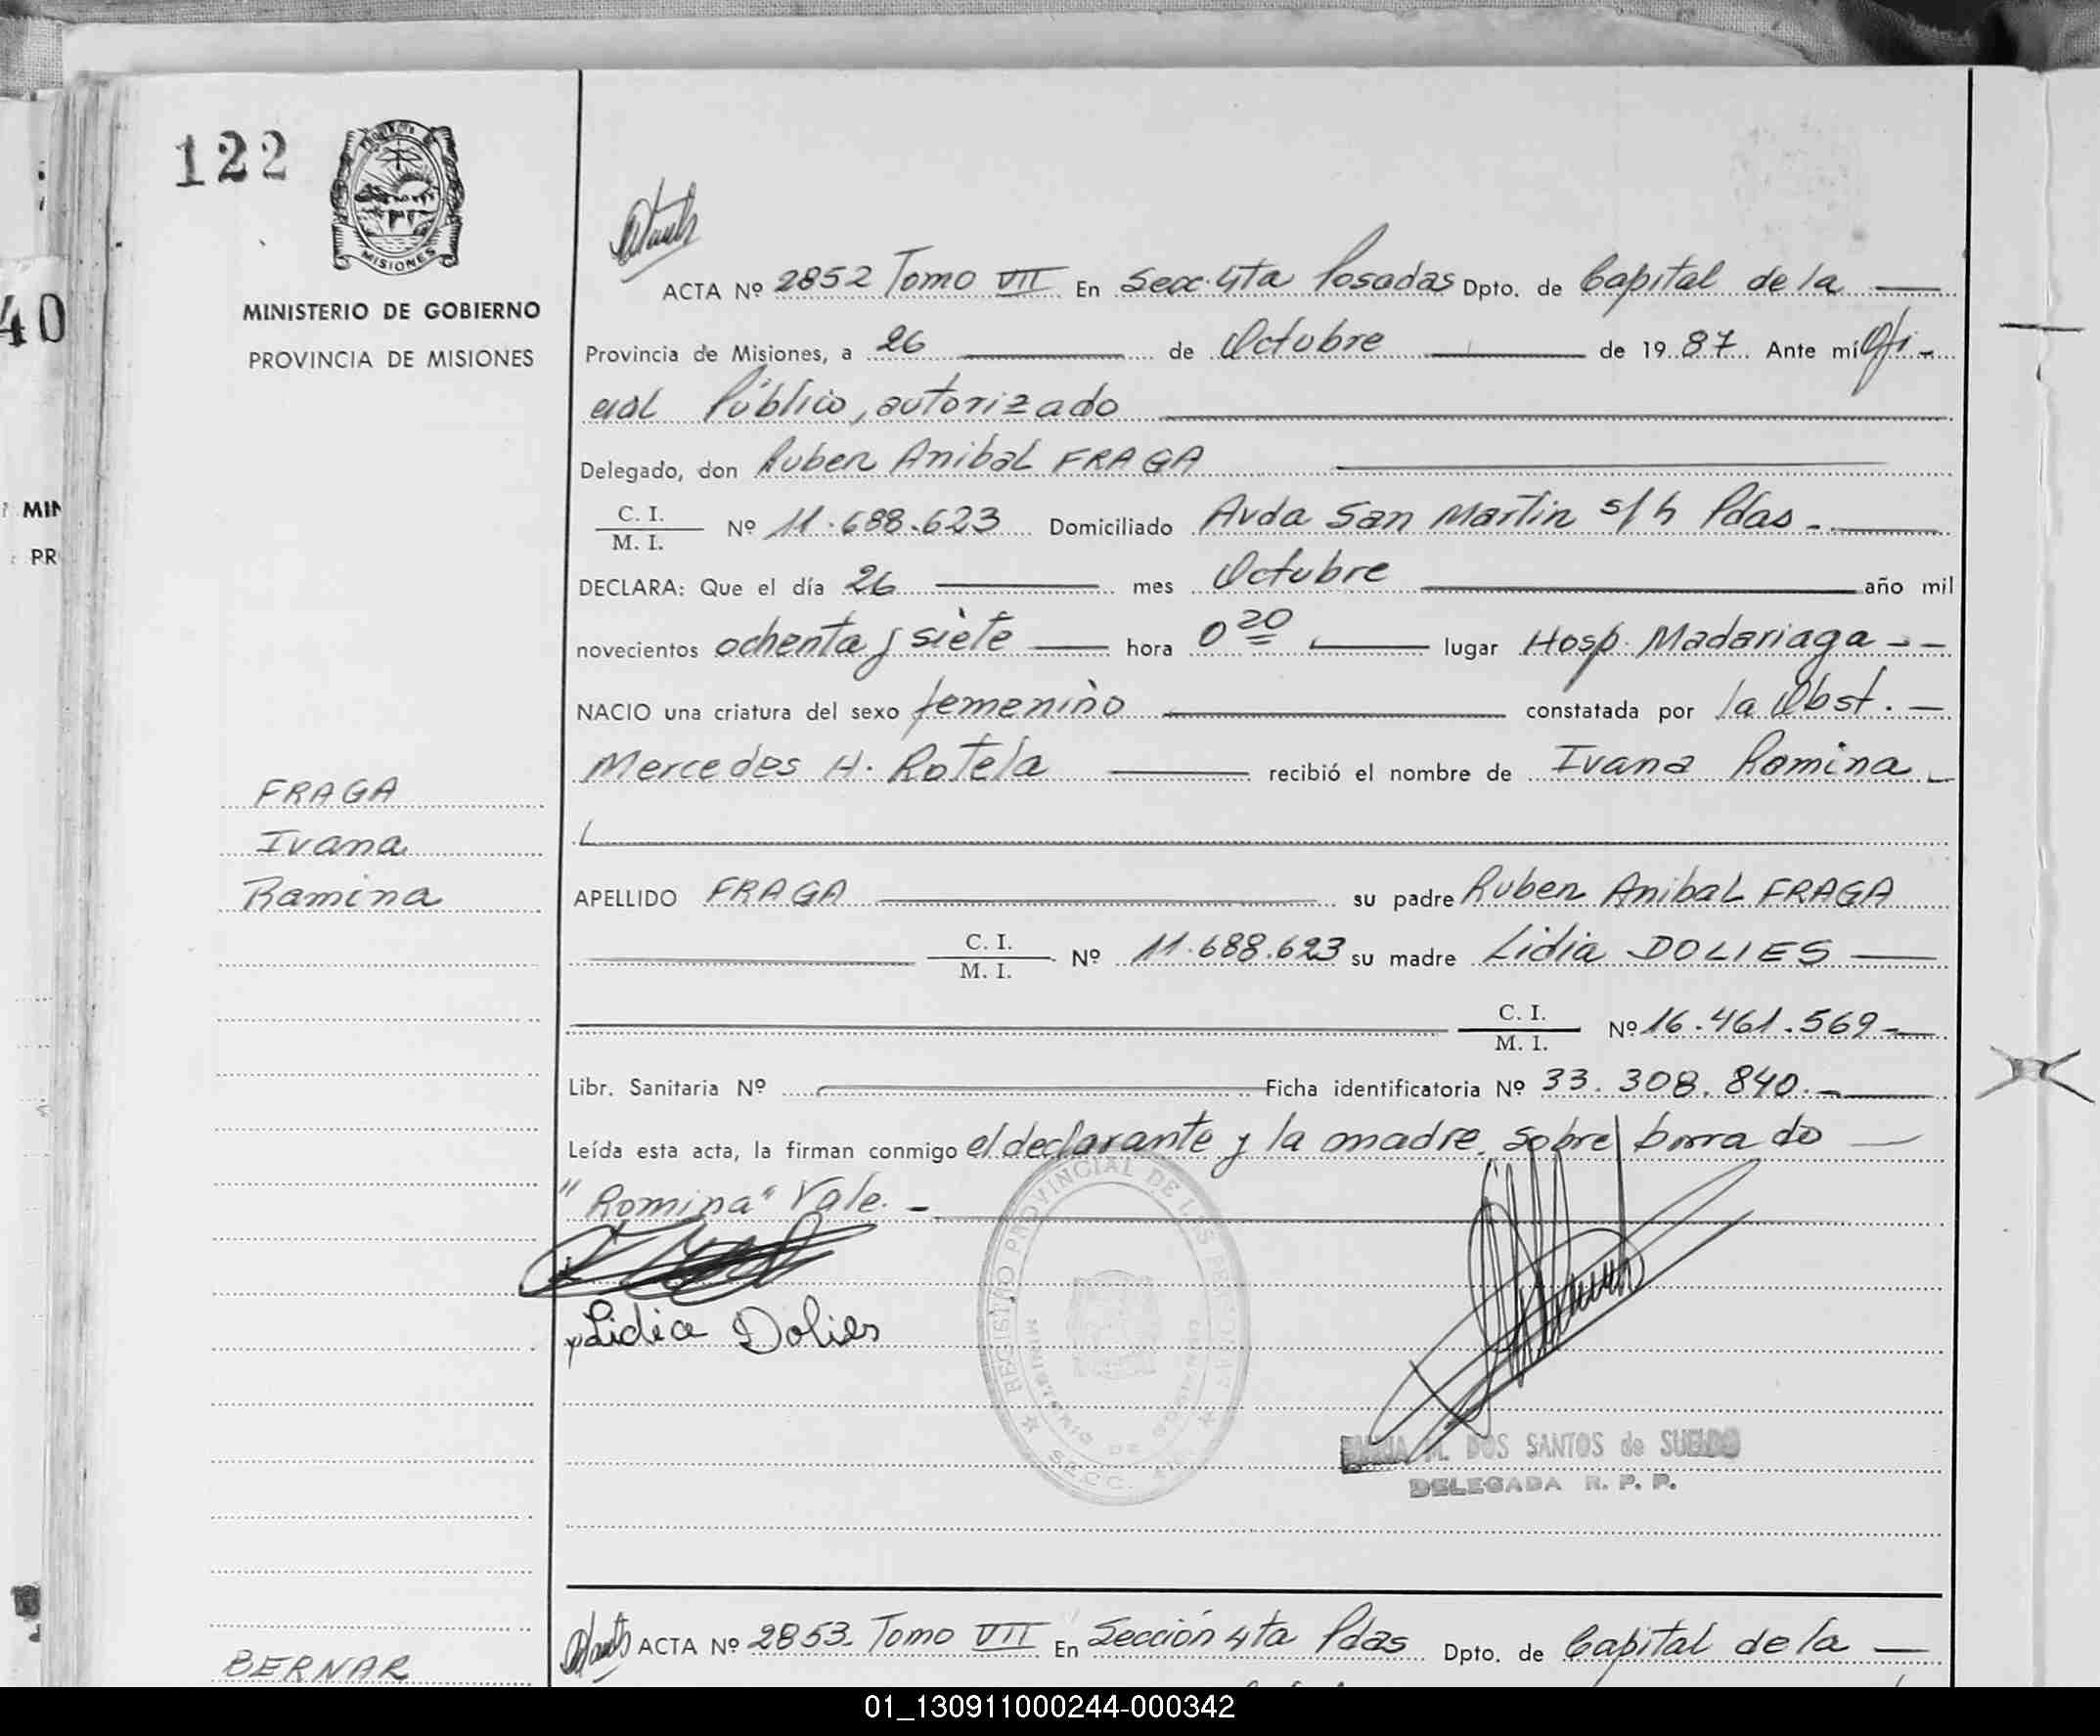 122
MISIONES
MINISTERIO DE GOBIERNO
PROVINCIA DE MISIONES
40
MIN
PR
ACTA Nº 2852 Tomo VII En Secc. 4ta Posadas Dpto. de Capital de la
Provincia de Misiones, a 26 de Octubre de 1987. Ante mí Ofi-
cial Público, autorizado
Delegado, don Ruben Anibal FRAGA
C. I.
M. I. Nº 11.688.623 Domiciliado Avda San Martin s/h Pdas.-
DECLARA: Que el día 26 mes Octubre año mil
novecientos ochenta y siete hora 0 20 lugar Hosp. Madariaga --
NACIO una criatura del sexo femenino constatada por la Obst. -
Mercedes H. Rotela recibió el nombre de Ivana Romina
FRAGA
Ivana
Romina
APELLIDO FRAGA su padre Ruben Anibal FRAGA
C. I.
M. I. Nº 11.688.623 su madre Lidia DOLIES
C. I.
M. I. Nº 16.461.569-
Libr. Sanitaria Nº Ficha identificatoria Nº 33.308.840.-
Leída esta acta, la firman conmigo el declarante y la madre. Sobre borrado
"Romina" Vale.-
Lidia Dolies
REGISTRO PROVINCIAL DE LAS PERSONAS
MINISTERIO DE GOBIERNO
M. DOS SANTOS de SUELDO
DELEGADA R. P. P.
ACTA Nº 2853. Tomo VII En Sección 4ta Pdas Dpto. de Capital de la
BERNAR
01_130911000244-000342